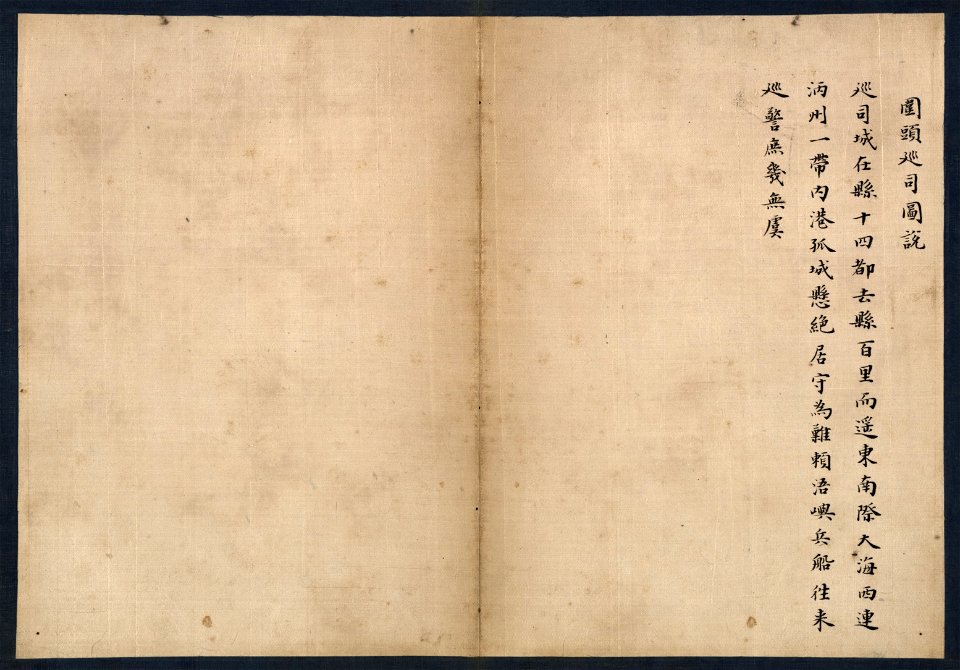 圍頭巡司圖說
巡司城在縣十四都去縣百里而遥東南際大海西連
洦州一帶内港孤城懸絶居守為難頼浯嶼兵船徃来
巡警庶幾無虞